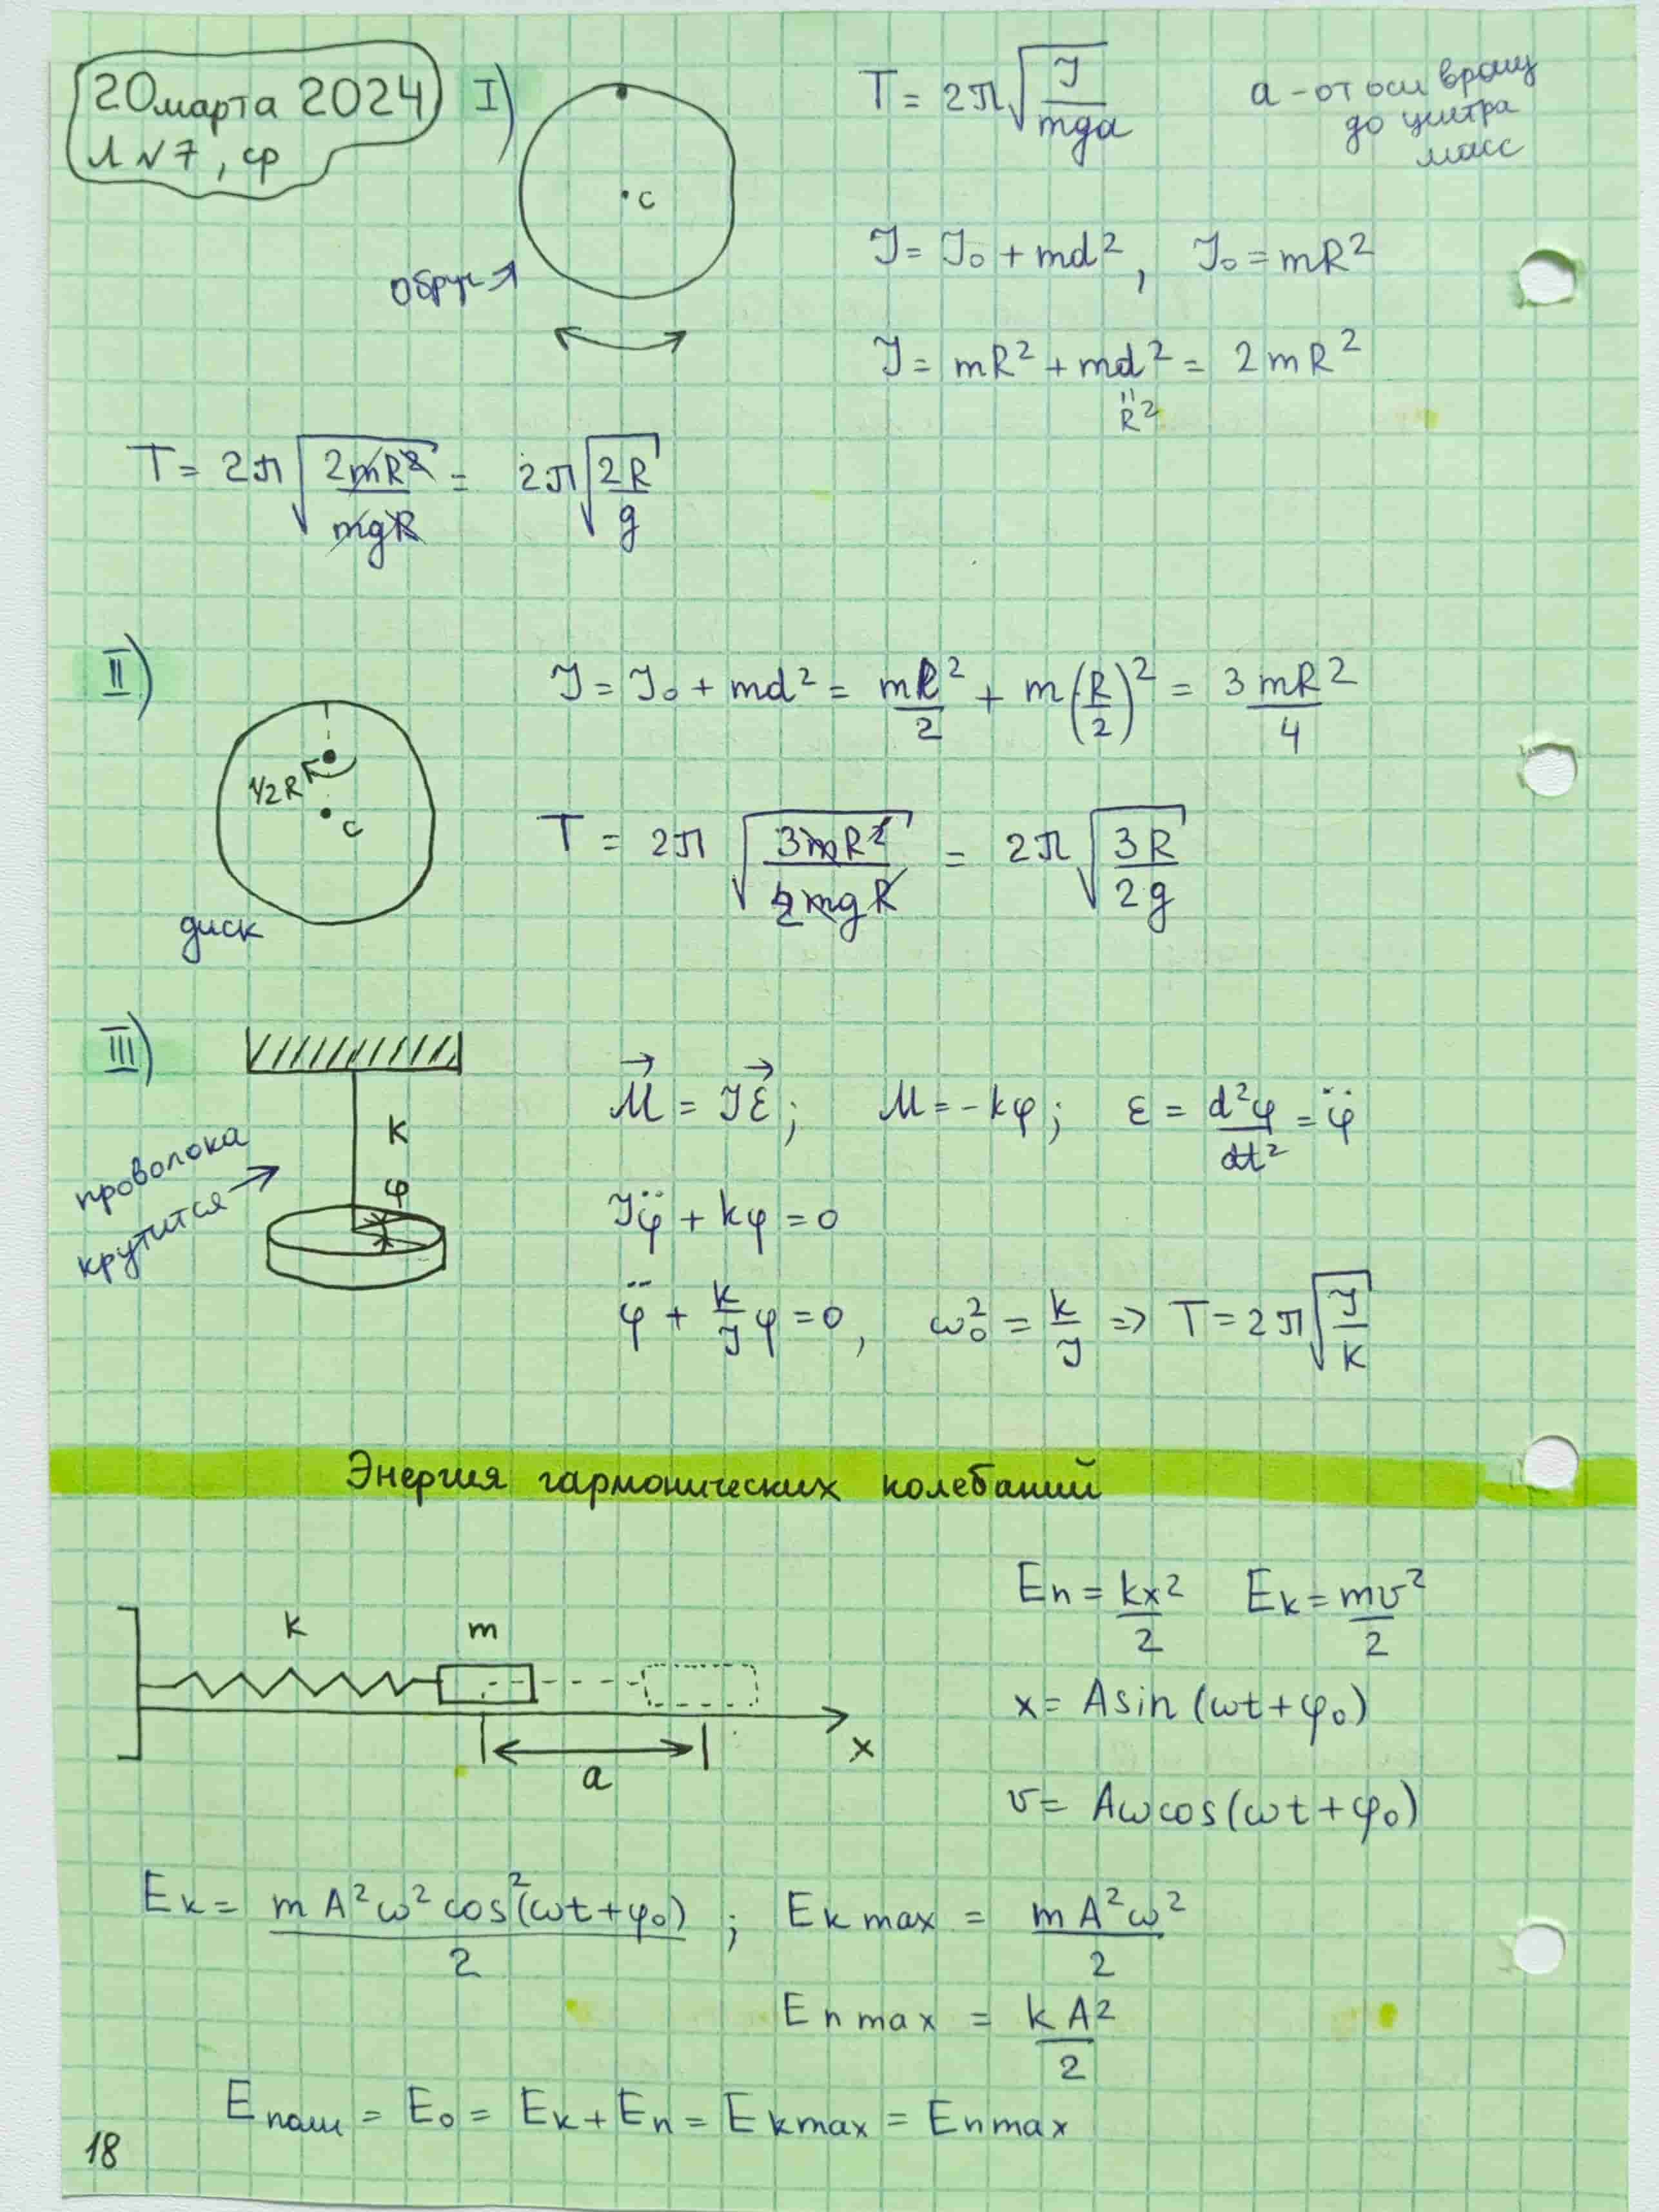 20 марта 2024
Л №7, ср
I)
• c
обруч →
T = 2π√(J/mga)
a - от оси вращ
до центра
масс
J = J₀ + md², J₀ = mR²
J = mR² + md² = 2mR²
R²
T = 2π√(2mR²/mgR) = 2π√(2R/g)
II)
1/2 R
• c
диск
J = J₀ + md² = mR²/2 + m(R/2)² = 3mR²/4
T = 2π√(3mR²/2mgR) = 2π√(3R/2g)
III)
k
φ
проволока
крутится →
M⃗ = Jε⃗; M = -kφ; ε = d²φ/dt² = φ̈
Jφ̈ + kφ = 0
φ̈ + k/J φ = 0, ω₀² = k/J => T = 2π√(J/k)
Энергия гармонических колебаний
k
m
a
x
Eп = kx²/2 Eк = mv²/2
x = A sin (ωt + φ₀)
v = Aω cos (ωt + φ₀)
Eк = mA²ω² cos²(ωt + φ₀)/2 ; Eк max = mA²ω²/2
Eп max = kA²/2
Eполн = E₀ = Eк + Eп = Eк max = Eп max
18